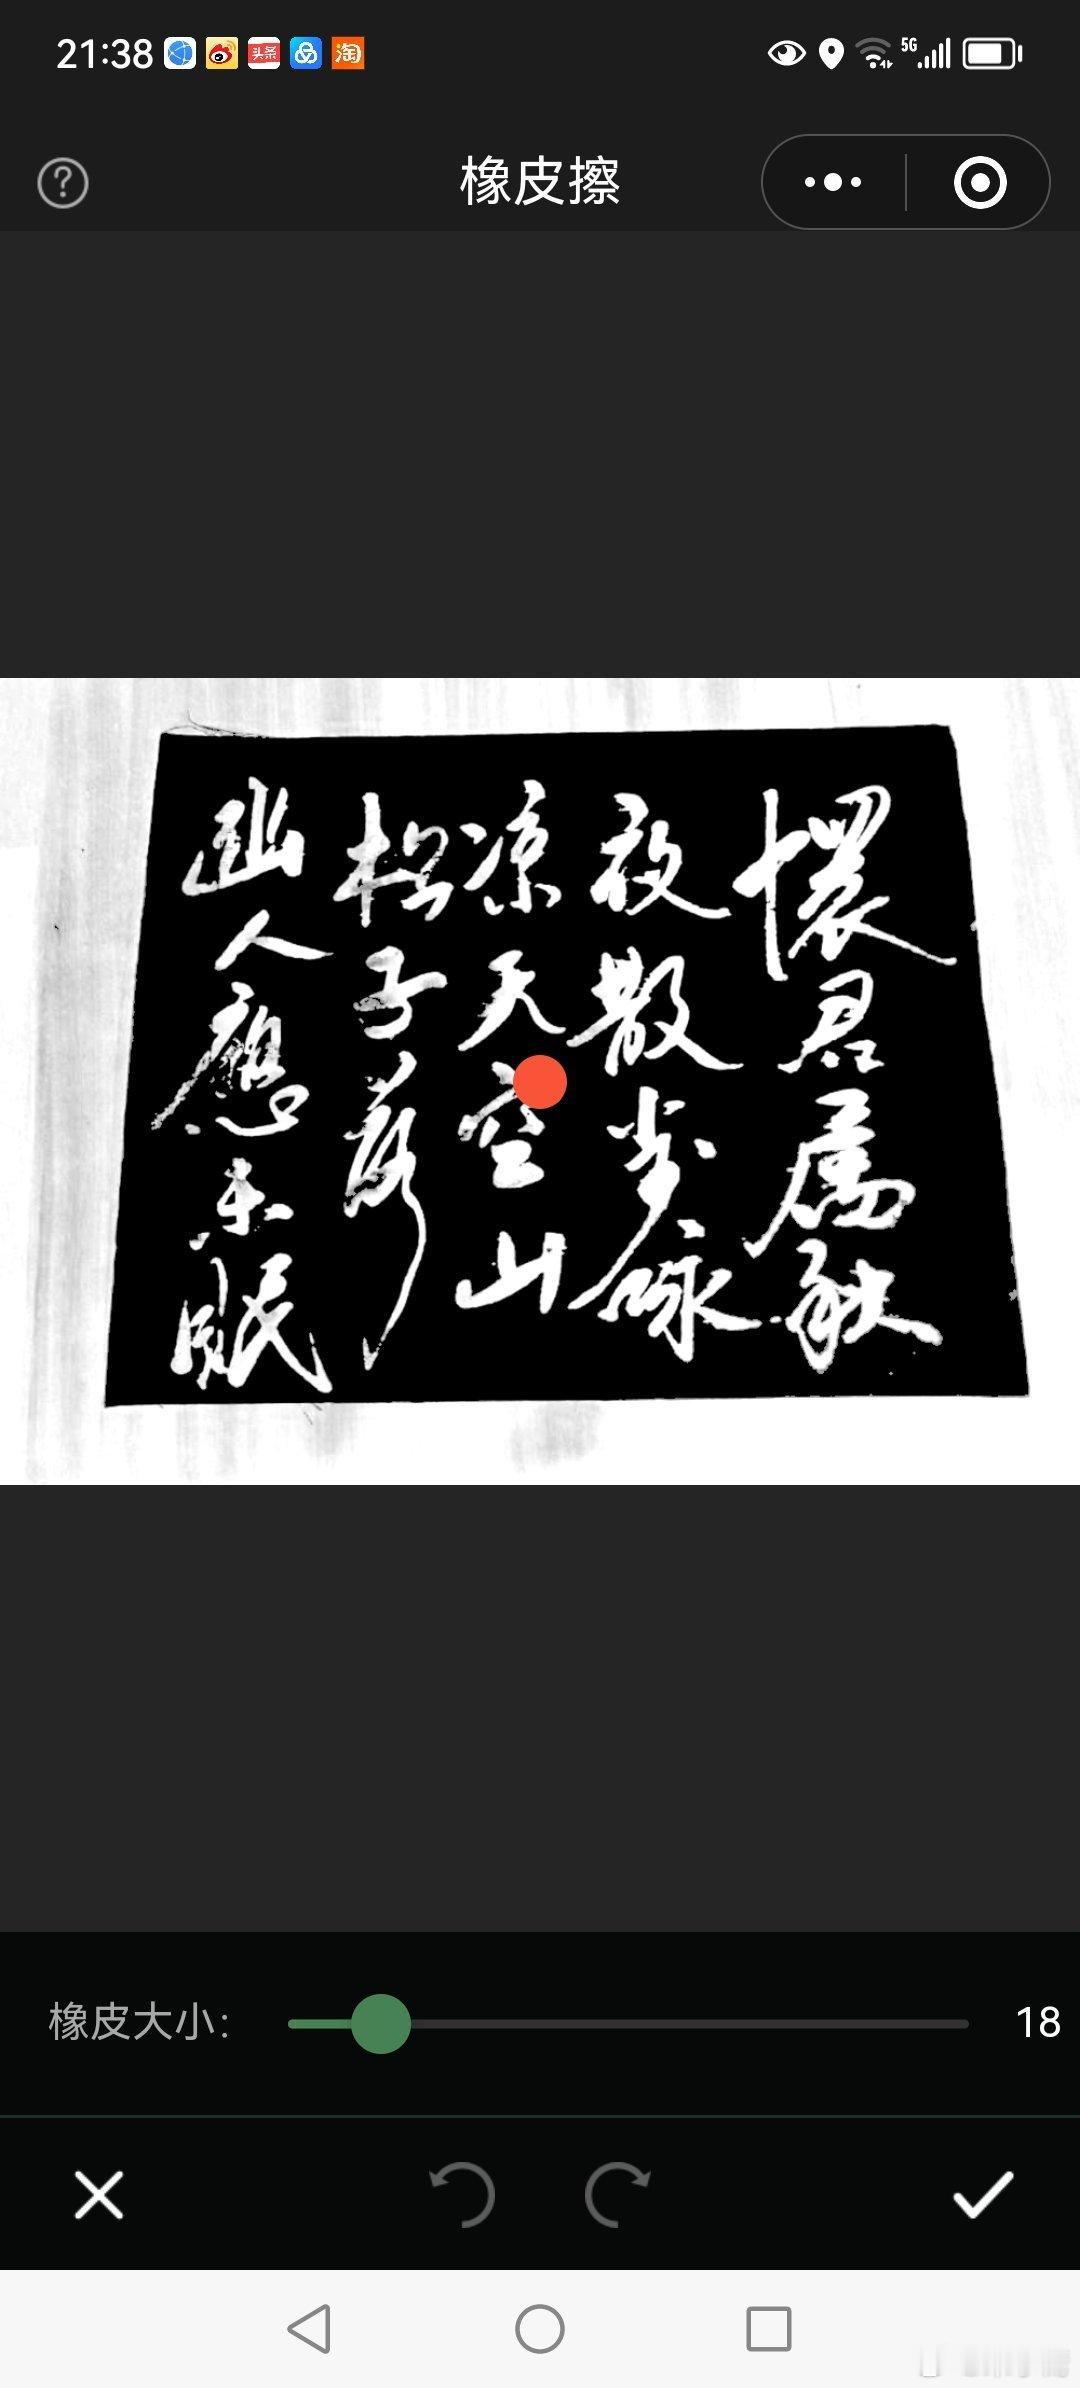 21:38
头条
淘
5G
橡皮擦
懷君屬秋
夜散步咏
凉天空山
松子落
幽人應未眠
橡皮大小:
18